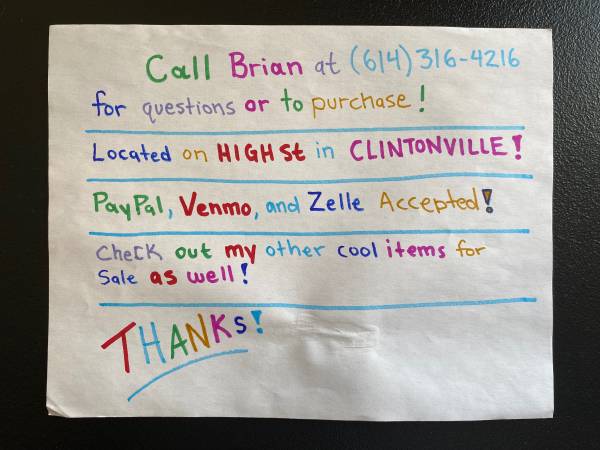 Call Brian at (614) 316-4216
for questions or to purchase!
Located on HIGH St in CLINTONVILLE!
PayPal, Venmo, and Zelle Accepted!
Check out my other cool items for
Sale as well!
THANKS!